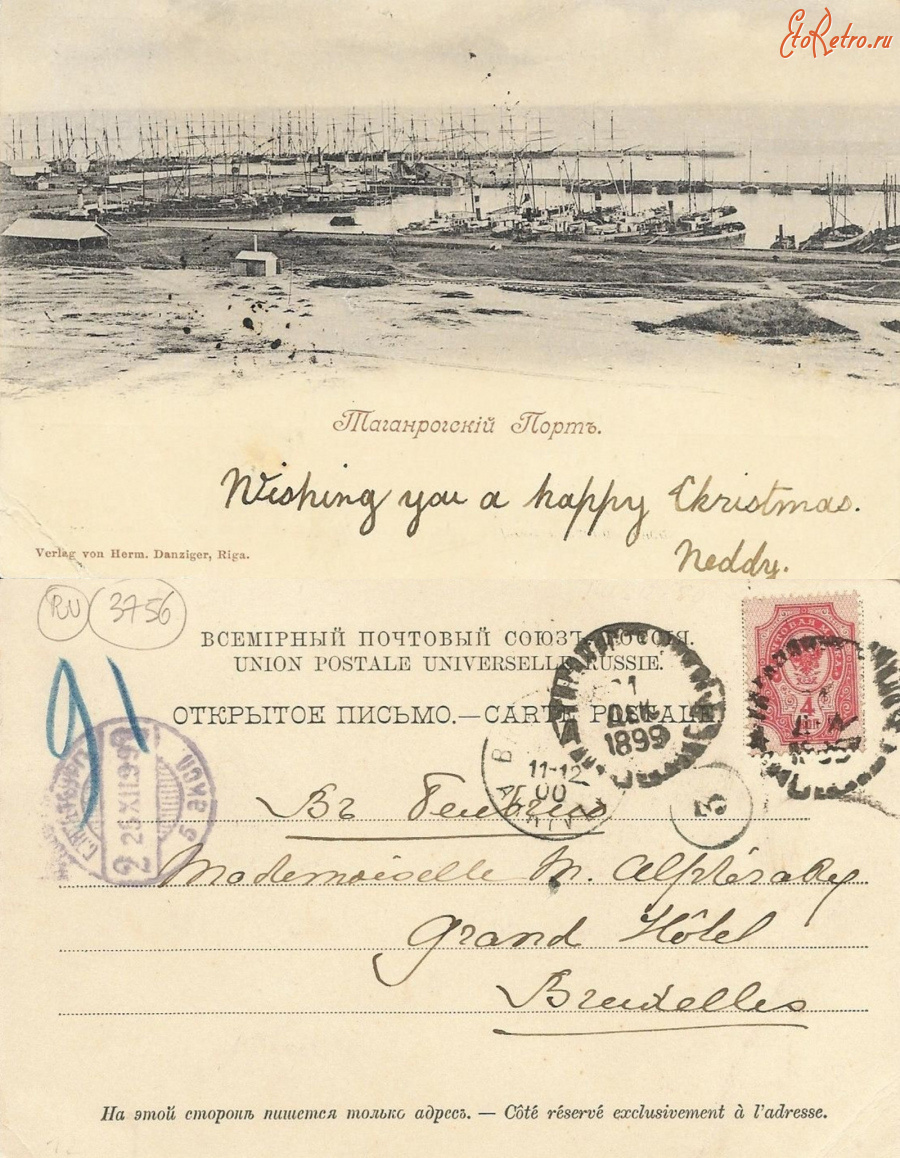 EtoRetro.ru
Таганрогскій Портъ.
Wishing you a happy Christmas.
Neddy.
Verlag von Herm. Danziger, Riga.
RU 3756
ВСЕМІРНЫЙ ПОЧТОВЫЙ СОЮЗЪ. РОССІЯ.
UNION POSTALE UNIVERSELLE. RUSSIE.
91
ОТКРЫТОЕ ПИСЬМО.—CARTE POSTALE
4
ДЕК
1899
11-12
00
3
25 XII 99
2
Въ Бельгію
Mademoiselle M. Alphéraky
Grand Hôtel
Bruxelles
На этой сторонѣ пишется только адресъ. — Côté réservé exclusivement à l'adresse.